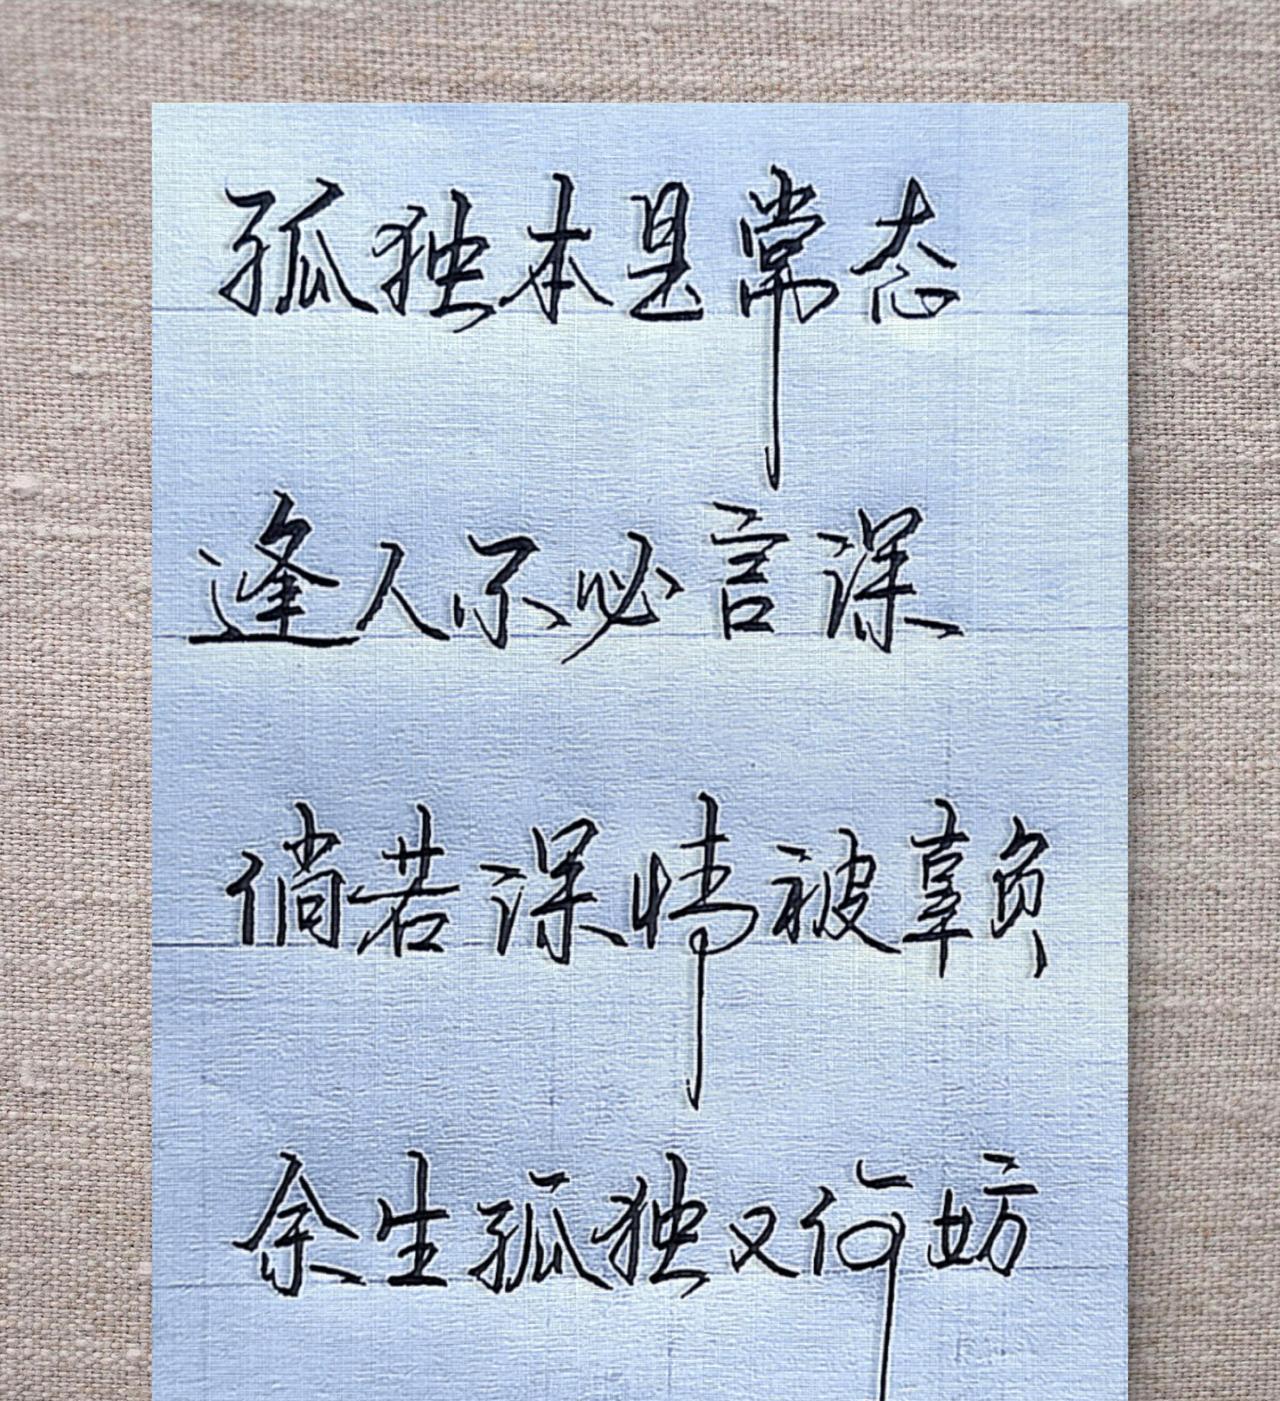 孤独本是常态
逢人不必言深
倘若深情被辜负
余生孤独又何妨